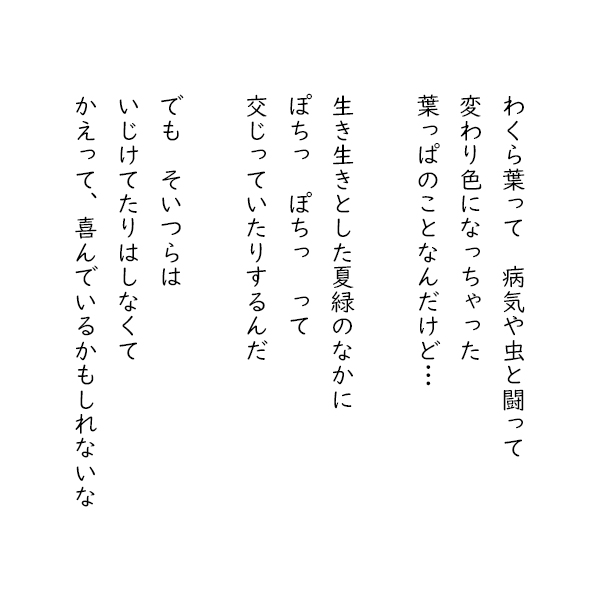 わくら葉って　病気や虫と闘って
変わり色になっちゃった
葉っぱのことなんだけど…
生き生きとした夏緑のなかに
ぽちっ　ぽちっ　って
交じっていたりするんだ
でも　そいつらは
いじけてたりはしなくて
かえって、喜んでいるかもしれないな